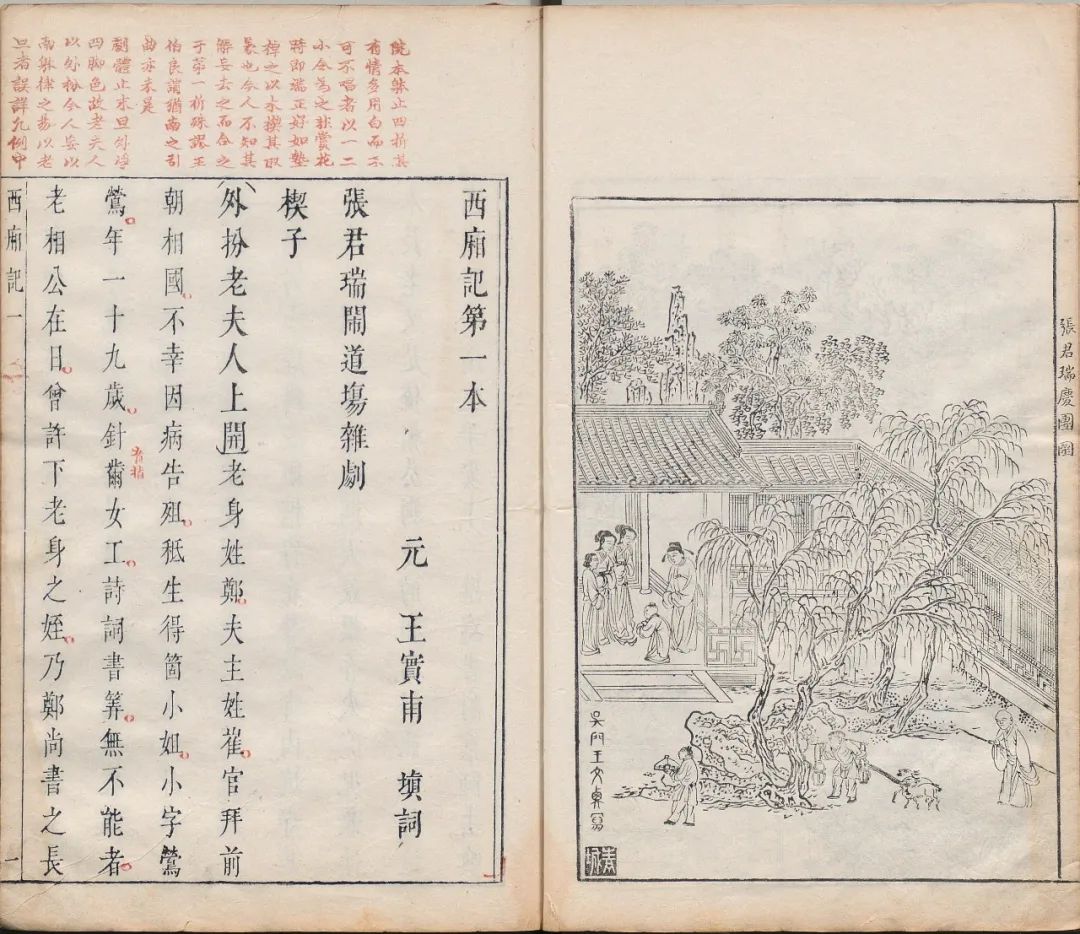 張君瑞慶團圞
吳門王文衡寫
院本躰止四折其
有情多用白而不
可不唱者以一二
小令為之非賞花
時即端正好如墊
棹之以木楔其取
義也今人不知其
解妄去之而合之
于第一折殊謬王
伯良謂猶南之引
曲亦未是
劇體止末旦外淨
四脚色故老夫人
以外扮今人妄以
南躰律之易以老
旦者誤詳凡例中
西廂記第一本
元 王實甫 填詞
張君瑞閙道塲雜劇
楔子
外扮老夫人上開老身姓鄭夫主姓崔官拜前
朝相國不幸因病告殂秪生得箇小姐小字鶯
鶯年一十九歲針黹女工詩詞書筭無不能者
音指
老相公在日曾許下老身之姪乃鄭尚書之長
西廂記一
一